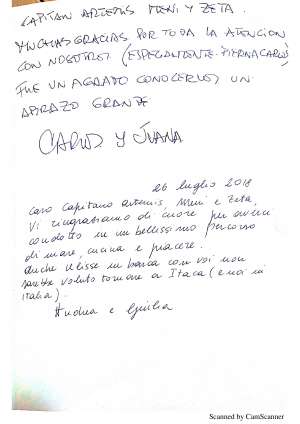 CAPITAN ARTEMIS MENI Y ZETA.
MUCHAS GRACIAS POR TODA LA ATENCION
CON NOSOTROS (ESPECIALMENTE PIERNA CARLOS)
FUE UN AGRADO CONOCERLOS UN
ABRAZO GRANDE
CARLOS Y JUANA
26 luglio 2018
Caro Capitano Artemis, Meni e Zeta,
Vi ringraziamo di cuore per averci
condotto in un bellissimo percorso
di mare, cucina e piacere.
Anche Ulisse in barca con voi non
sarebbe voluto tornare a Itaca (e noi in
Italia).
Andrea e Giulia
Scanned by CamScanner